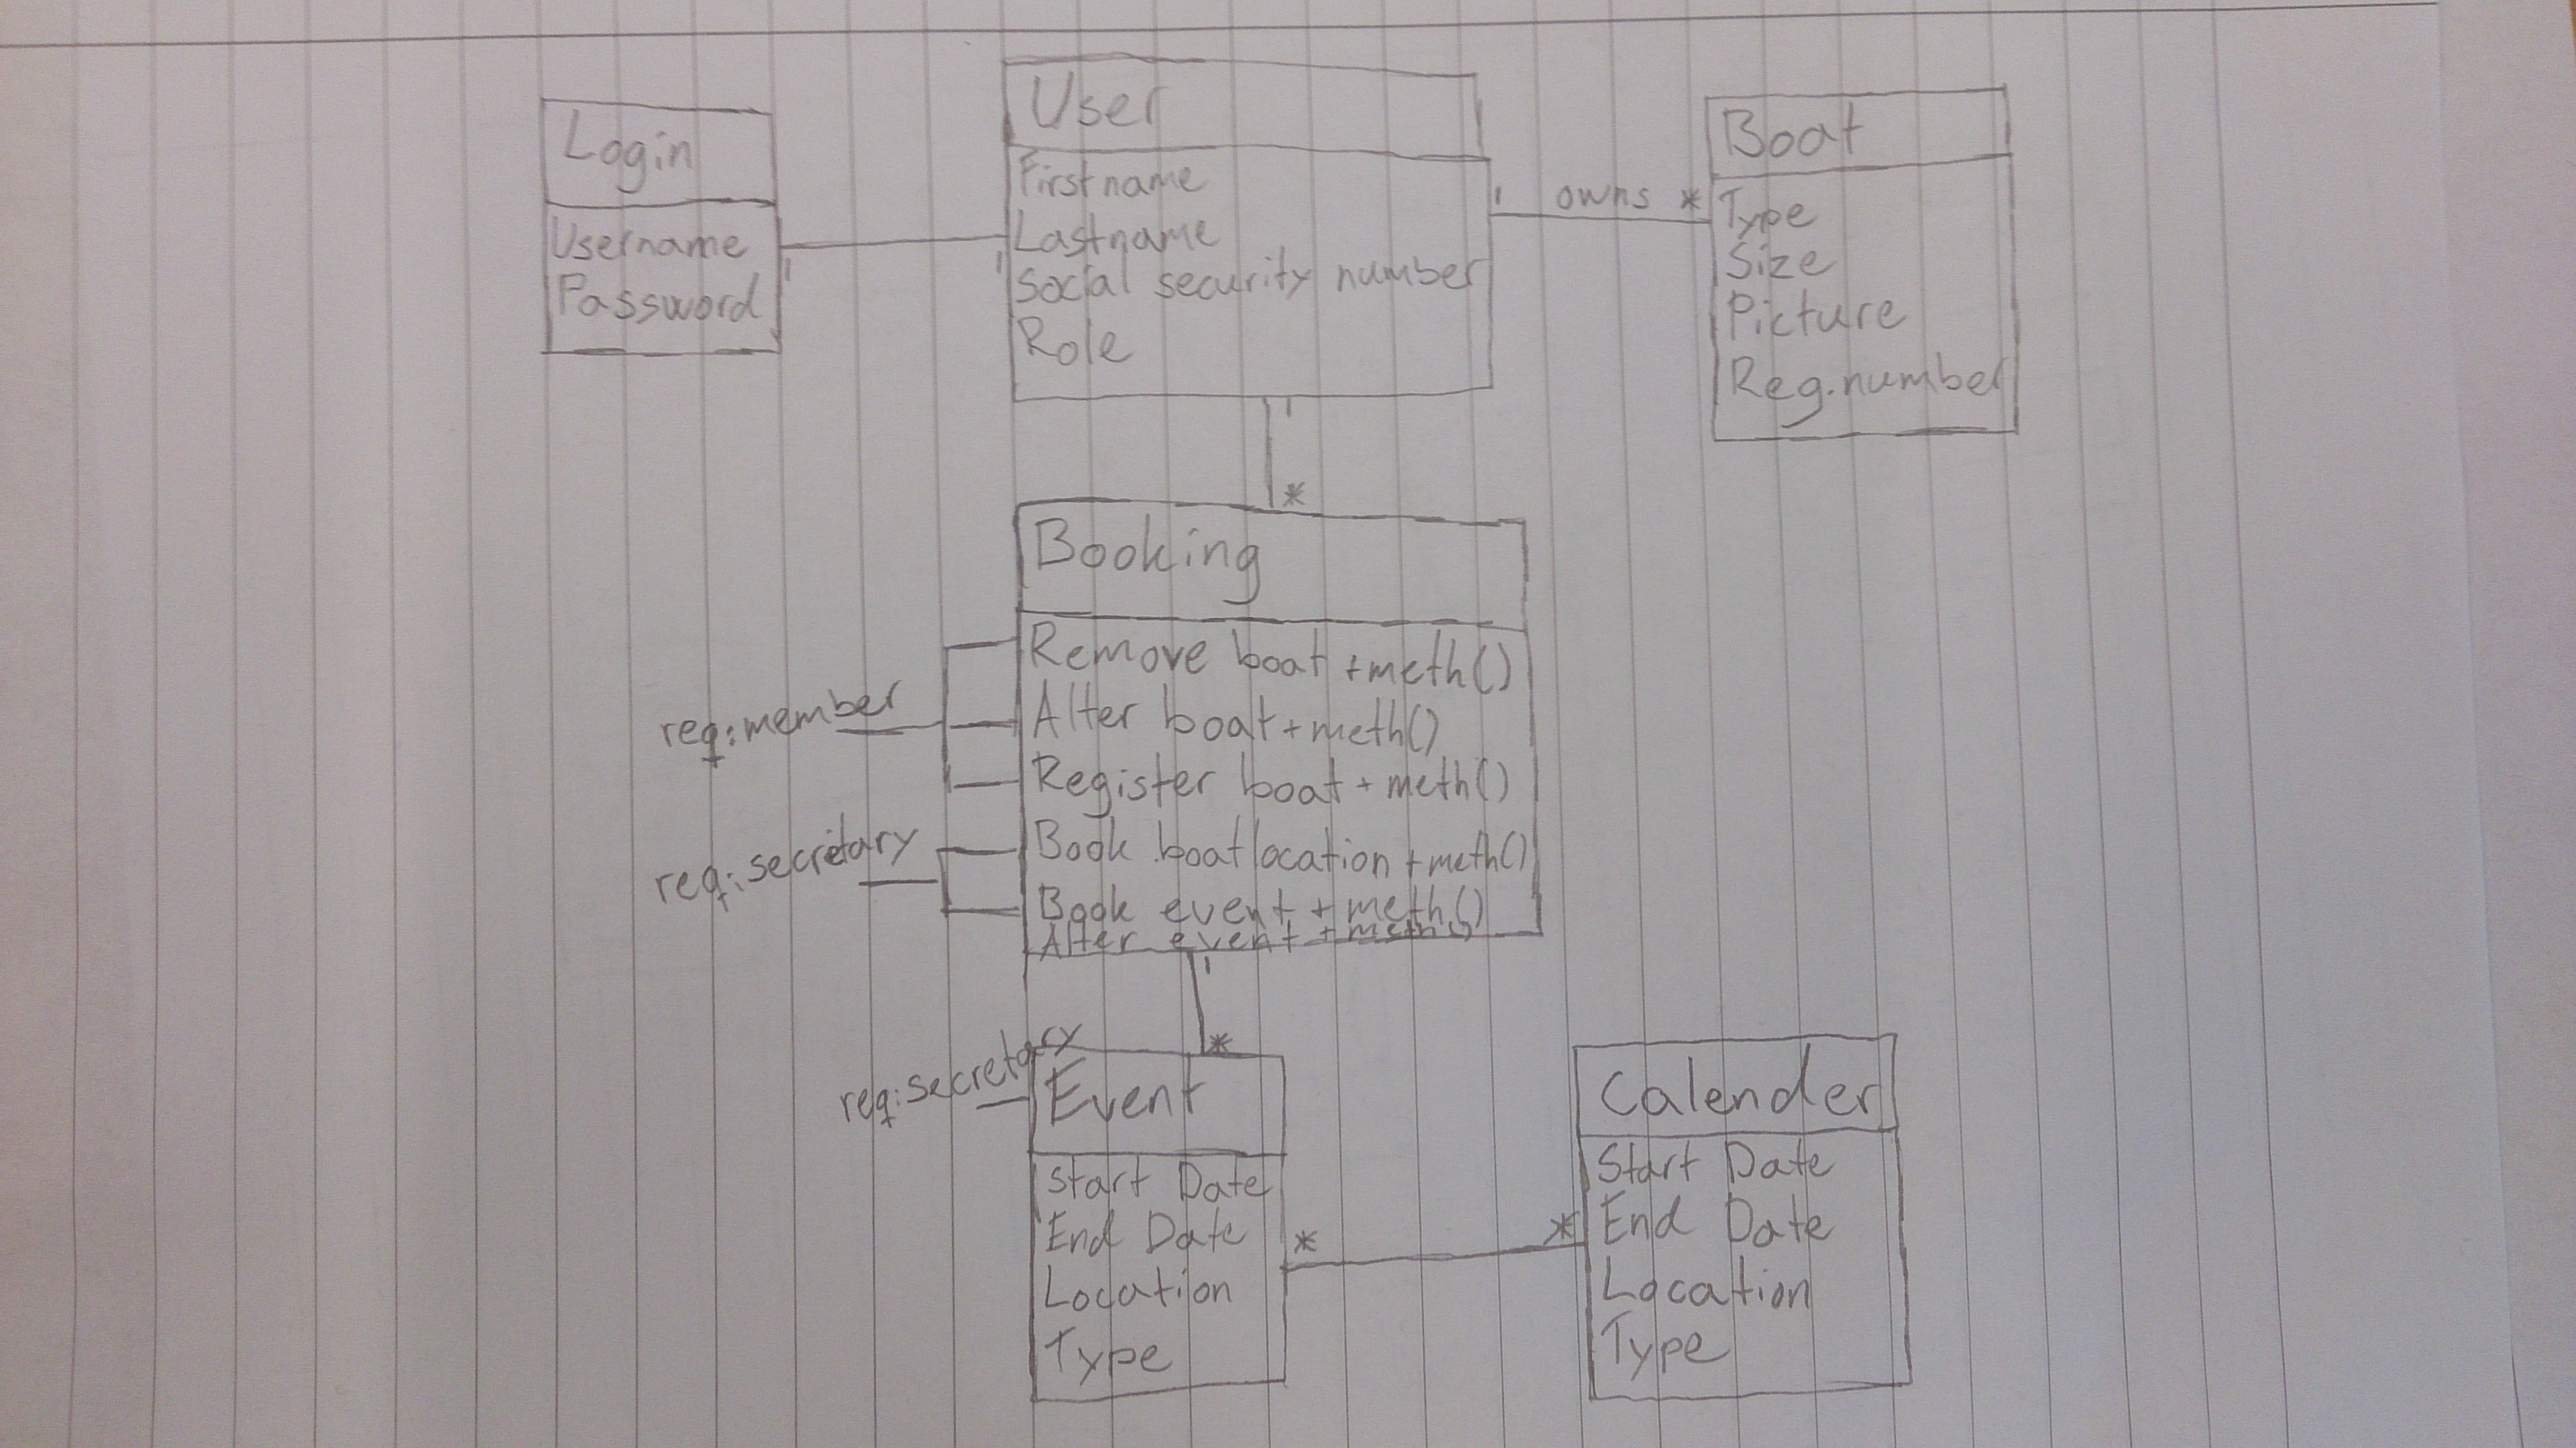 Login
Username
Password
User
Firstname
Lastname
Social security number
Role
1
1
1 owns *
Boat
Type
Size
Picture
Reg.number
1
*
Booking
Remove boat +meth()
Alter boat+meth()
Register boat + meth()
Book boatlocation +meth()
Book event + meth()
Alter event + meth()
req:member
req:secretary
1
*
req:secretary
Event
Start Date
End Date
Location
Type
*
*
Calender
Start Date
End Date
Location
Type